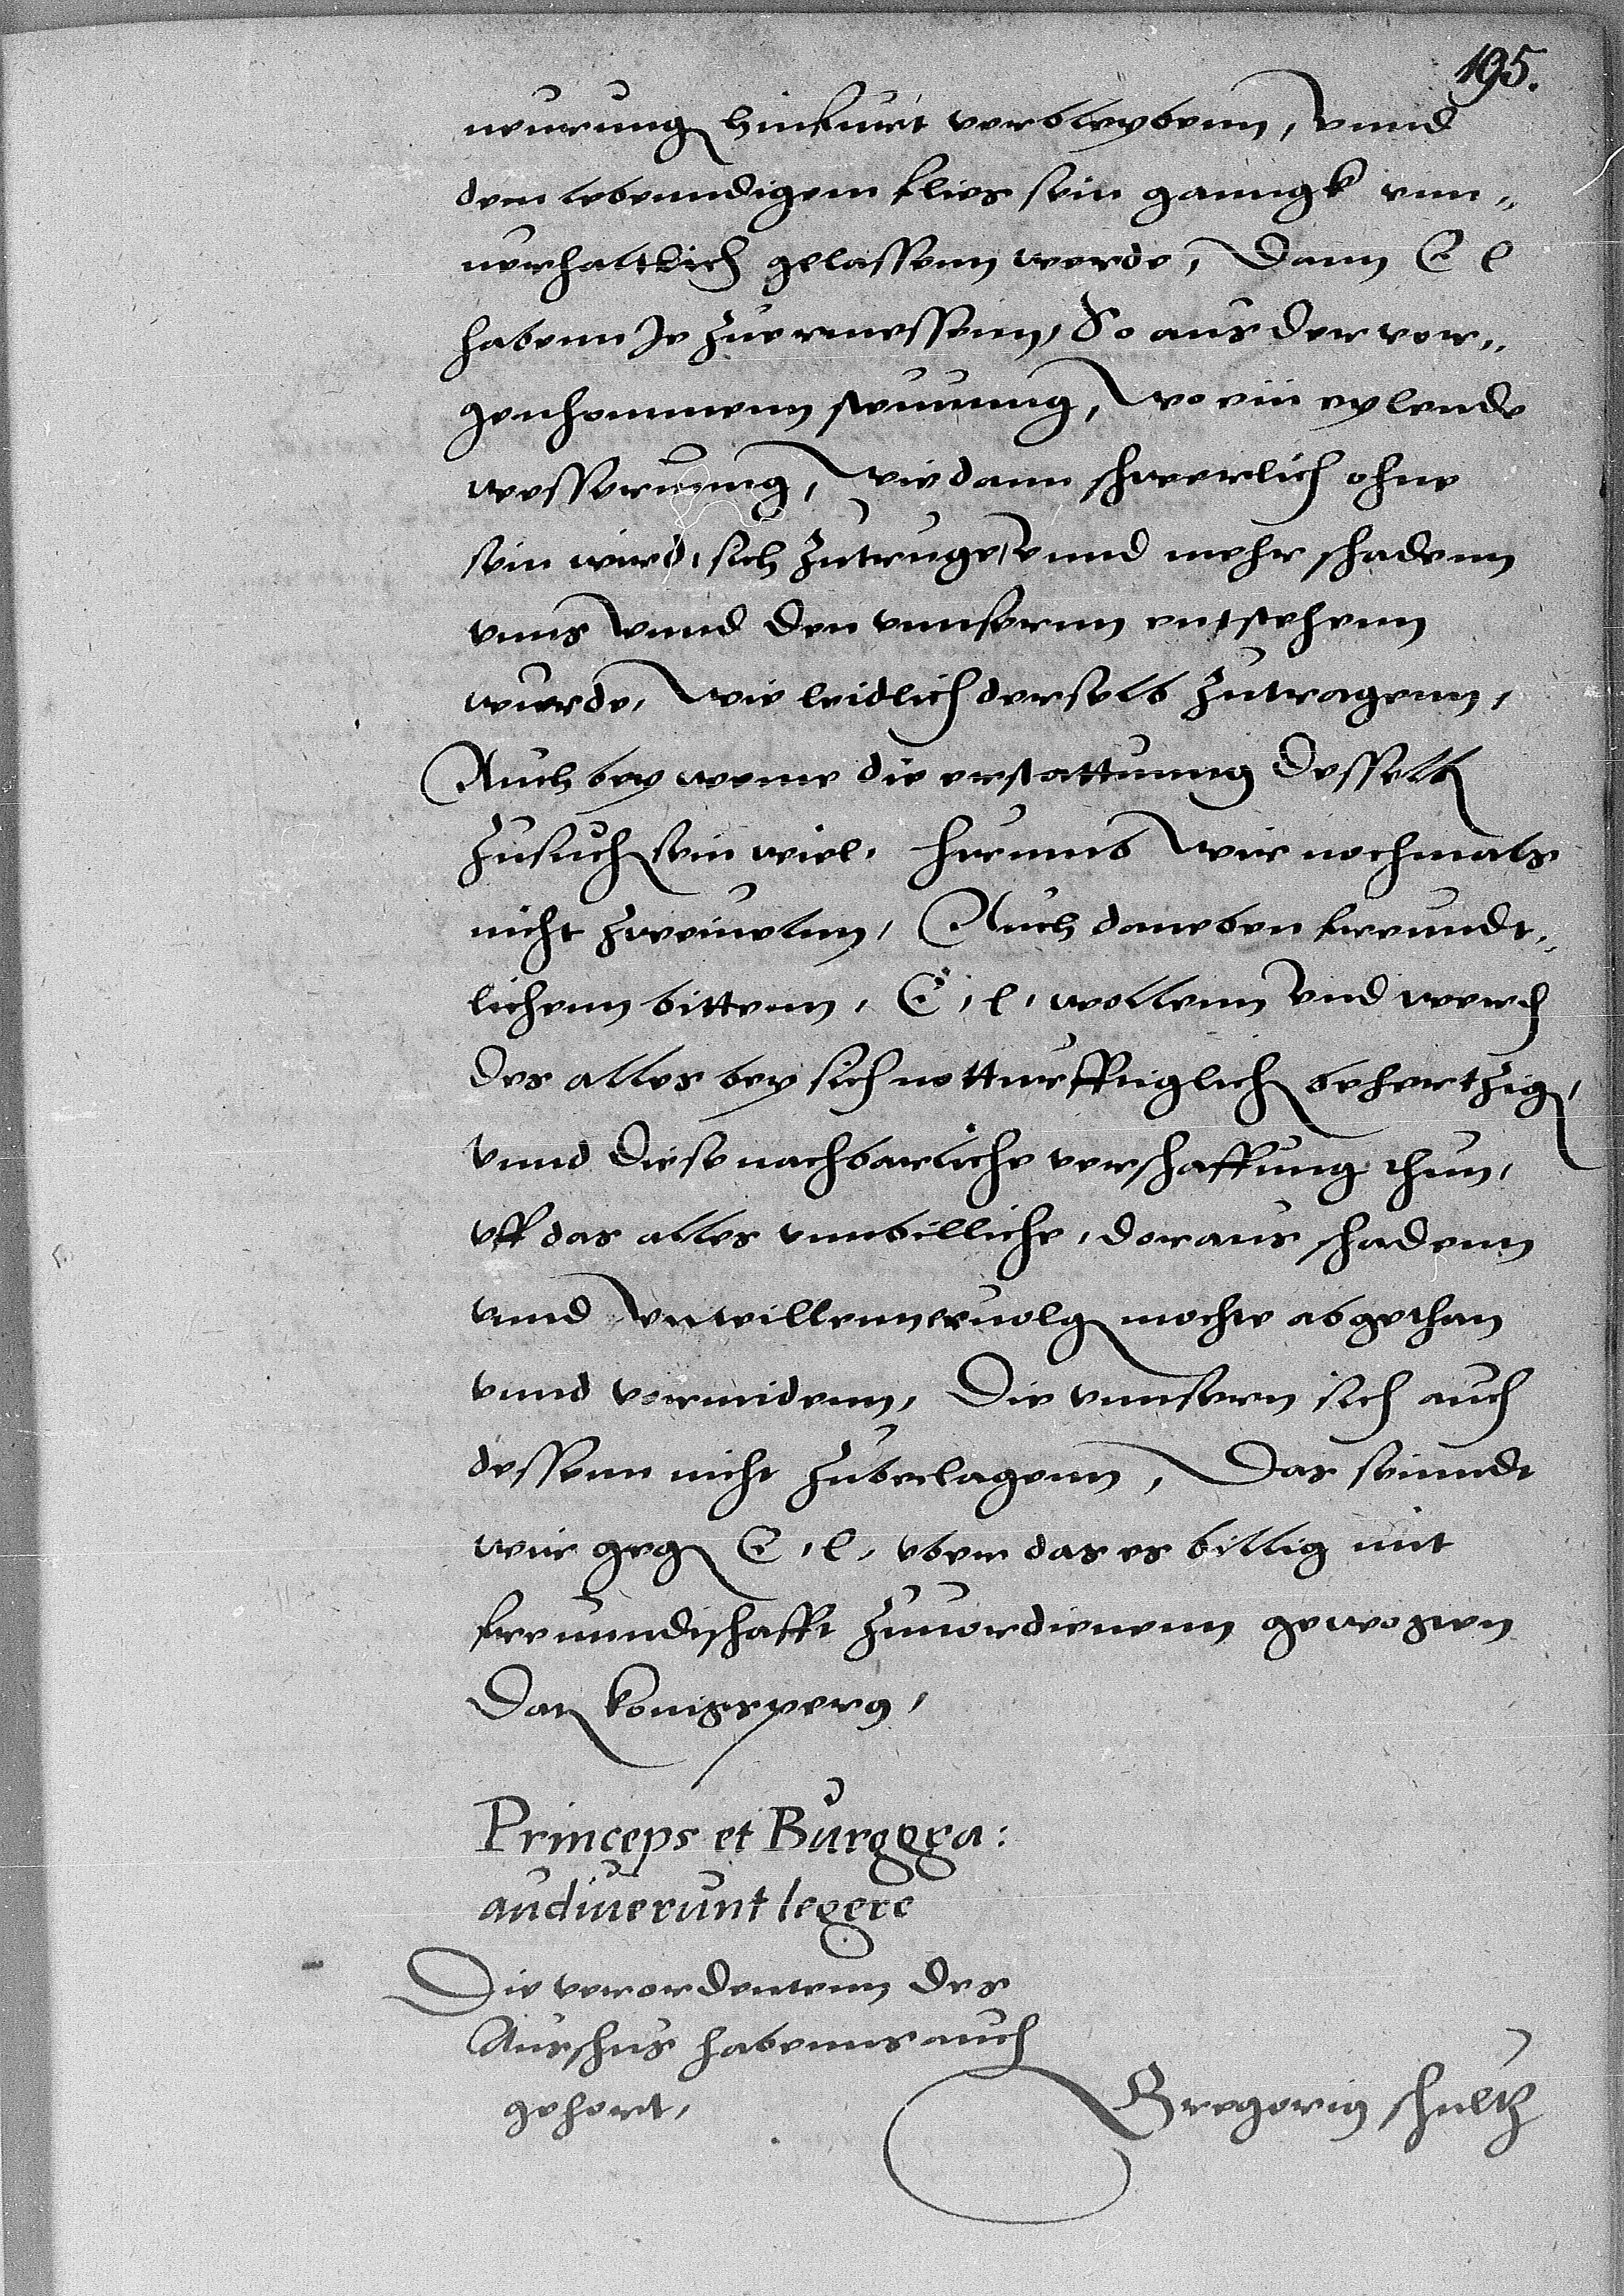 195.
neurung hinfurt verbleybenn, vnnd
dem lebenndigem flies sein ganngk vnn„
uerhaltlich gelassenn werde, Dann E l
habenn Je zuermessenn, So aus der vor„
genhommenn steuung, wo ein eylende
wesserung, wie dann schwerlich ohne
sein wird, sich zutruge, vnnd mehr schadenn
vnns vnnd den vnnsernn entstehenn
wurde, wie leidlich derselb zutragenn,
Auch bey weme die erstattunng desselb
zusuch sein wiel. Hirumb wir nochmals
nicht zweiueln, Auch daneben freundt„
lichenn bittenn, E, l, wollenn vnd werd
des alles bey sich notturfftiglich behertzig,
vnnd diese nachbarliche verschaffung thun,
vff das alles vnnbilliche, doraus schadenn
vnnd vnwillenn ervolg mochte abgethan
vnnd vormidenn, Die vnnsern sich auch
dessenn nicht zubeclagenn, Das seinndt
wir geg E, l, vber das es billig mit
freunndtschafft zuuordienenn gewogen
Dat konigsperg,
Princeps et Burggra:
audiuerunt legere
Die verordentenn des
Ausschus habenns auch
gehort,
Gregorius schultz